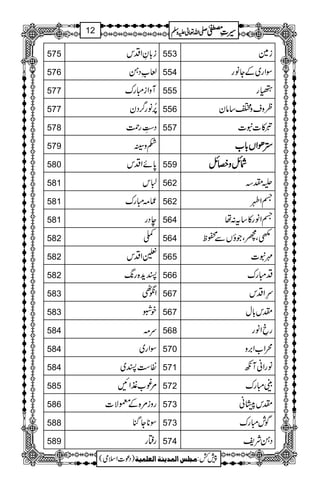 سیرتِ مصطفیٰ صلی اللہ تعالیٰ علیہ وسلم
12
زمین 553
سواری کے جانور 554
ہتھیار 555
ظروف و مختلف سامان 556
تبرکات نبوت 557
سترھواں باب
شمائل و خصائل 559
حلیۂ مقدسہ 562
جسم اطہر 562
جسم انور کا سایہ نہ تھا 564
مکھی، مچھر، جوؤں سے محفوظ 564
مہر نبوت 565
قد مبارک 566
سر اقدس 567
مقدس بال 567
رخ انور 568
محراب ابرو 570
نورانی آنکھ 571
بینی مبارک 572
مقدس پیشانی 573
گوش مبارک 573
دہن شریف 574
زبان اقدس 575
لعاب دہن 576
آواز مبارک 577
پُرنور گردن 577
دستِ رحمت 578
شکم و سینہ 579
پائے اقدس 580
لباس 581
عمامہ مبارک 581
چادر 581
کملی 582
نعلین اقدس 582
پسندیدہ رنگ 582
انگوٹھی 583
خوشبو 583
سرمہ 584
سواری 584
نفاست پسندی 584
مرغوب غذائیں 585
روزمرہ کے معمولات 586
سونا جاگنا 588
رفتار 589
پیش کش: مجلس المدینة العلمیة (دعوت اسلامی)